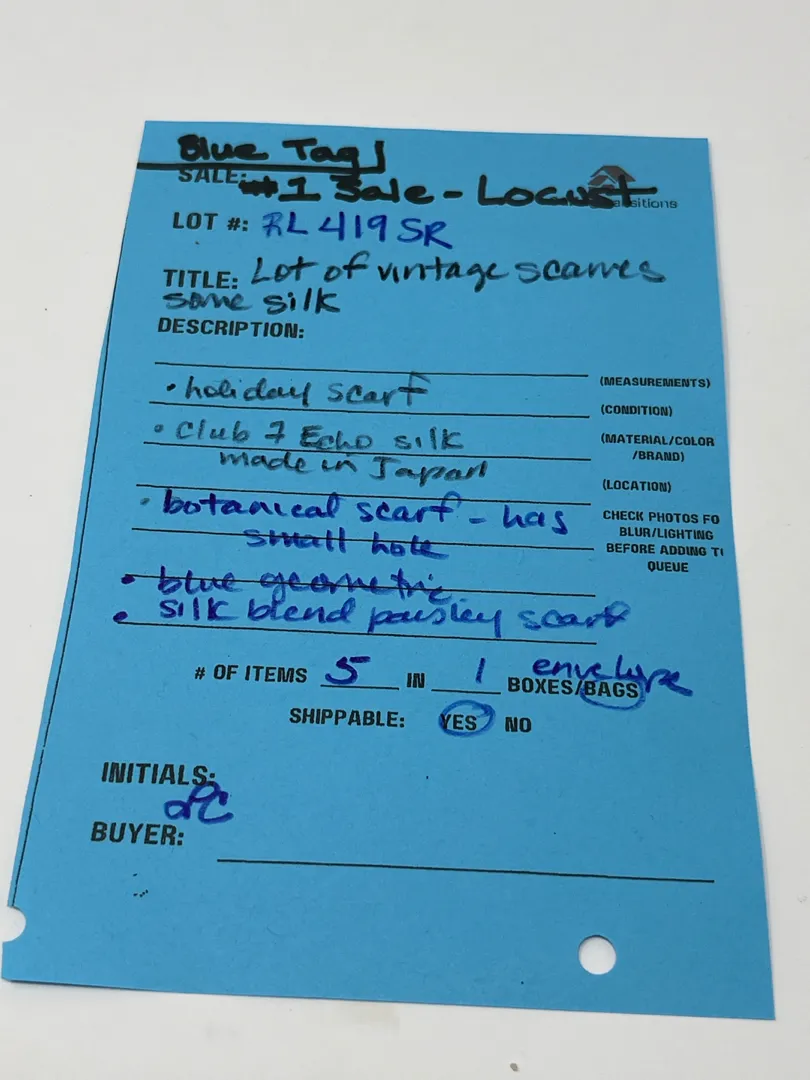 Blue Tag
SALE: #1 Sale - Locust
sitions
LOT #: RL 419 SR
TITLE: Lot of vintage scarves
some silk
DESCRIPTION:
(MEASUREMENTS)
• holiday scarf
(CONDITION)
• Club 7 Echo silk
(MATERIAL/COLOR
/BRAND)
made in Japan
(LOCATION)
• botanical scarf - has
small hole
CHECK PHOTOS FO
BLUR/LIGHTING
BEFORE ADDING T
QUEUE
• blue geometric
• silk blend paisley scarf
# OF ITEMS 5 IN 1 envelope BOXES/BAGS
SHIPPABLE: YES NO
INITIALS:
BUYER: